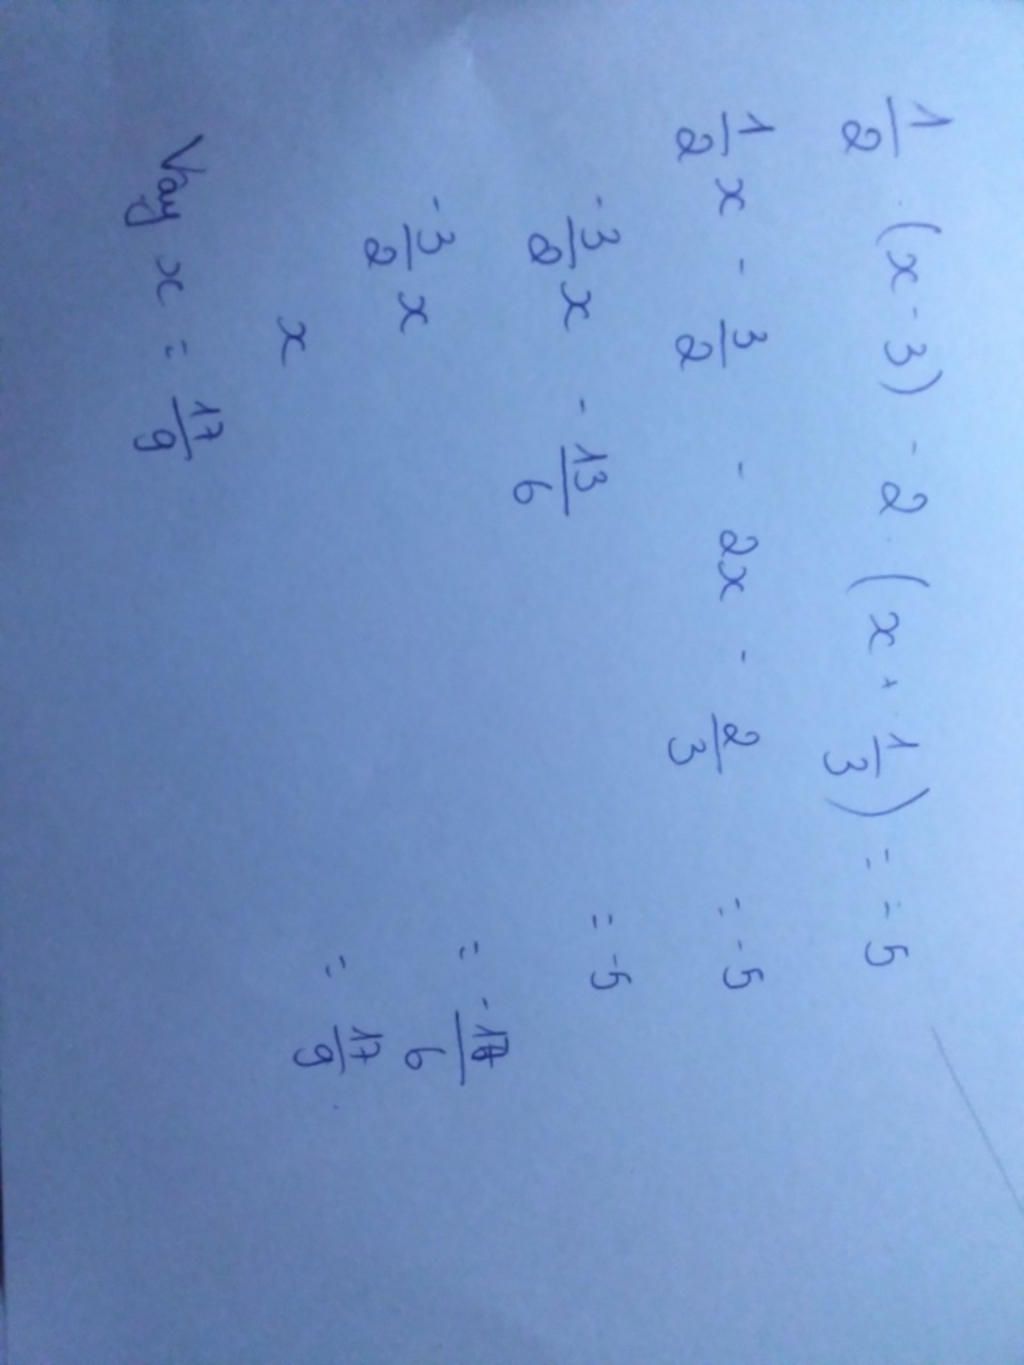 1/2 . (x - 3) - 2 . (x + 1/3) = -5
1/2 x - 3/2 - 2x - 2/3 = -5
-3/2 x - 13/6 = -5
-3/2 x = -17/6
x = 17/9
Vay x = 17/9